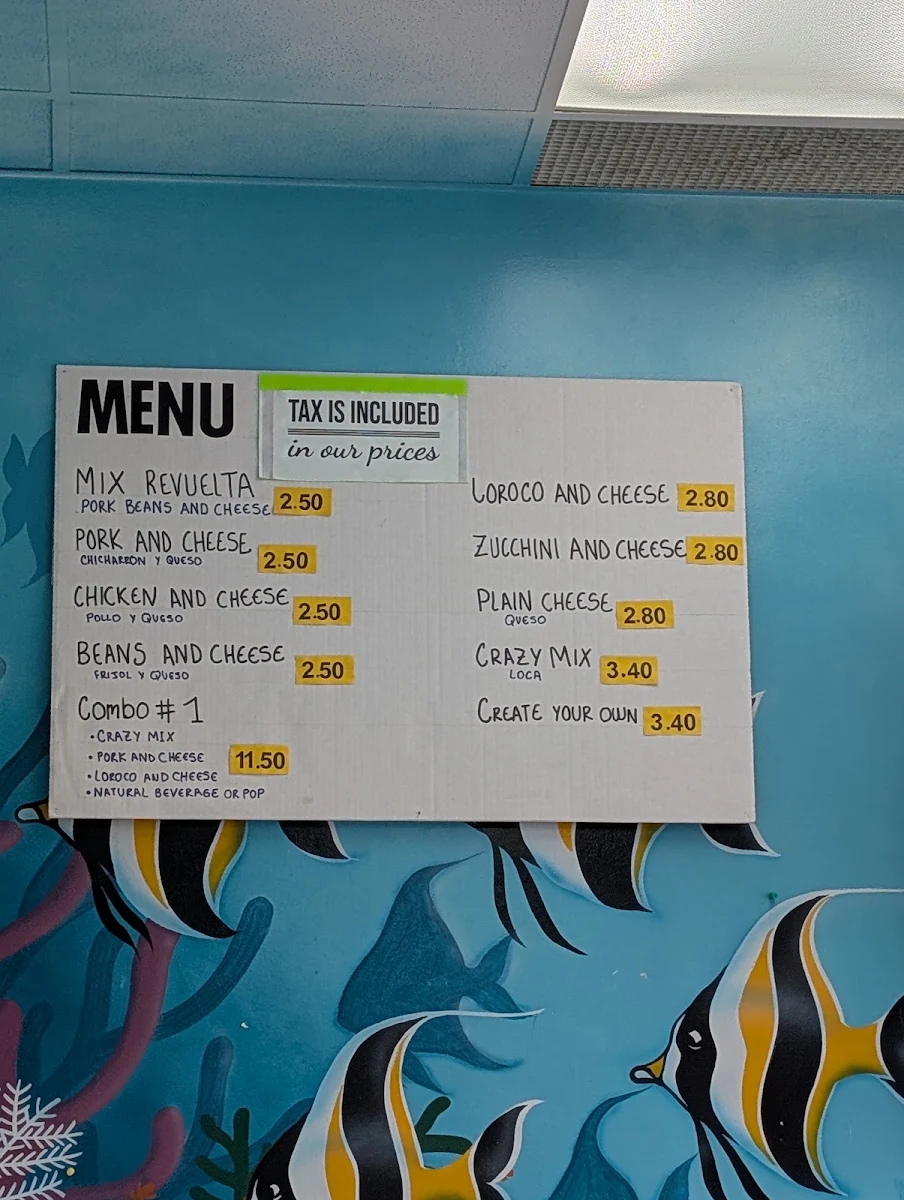 MENU
TAX IS INCLUDED
in our prices
MIX REVUELTA
PORK BEANS AND CHEESE 2.50
PORK AND CHEESE
CHICHARRON Y QUESO 2.50
CHICKEN AND CHEESE 2.50
POLLO Y QUESO
BEANS AND CHEESE 2.50
FRIJOL Y QUESO
COMBO # 1
• CRAZY MIX
• PORK AND CHEESE 11.50
• LOROCO AND CHEESE
• NATURAL BEVERAGE OR POP
LOROCO AND CHEESE 2.80
ZUCCHINI AND CHEESE 2.80
PLAIN CHEESE 2.80
QUESO
CRAZY MIX 3.40
LOCA
CREATE YOUR OWN 3.40